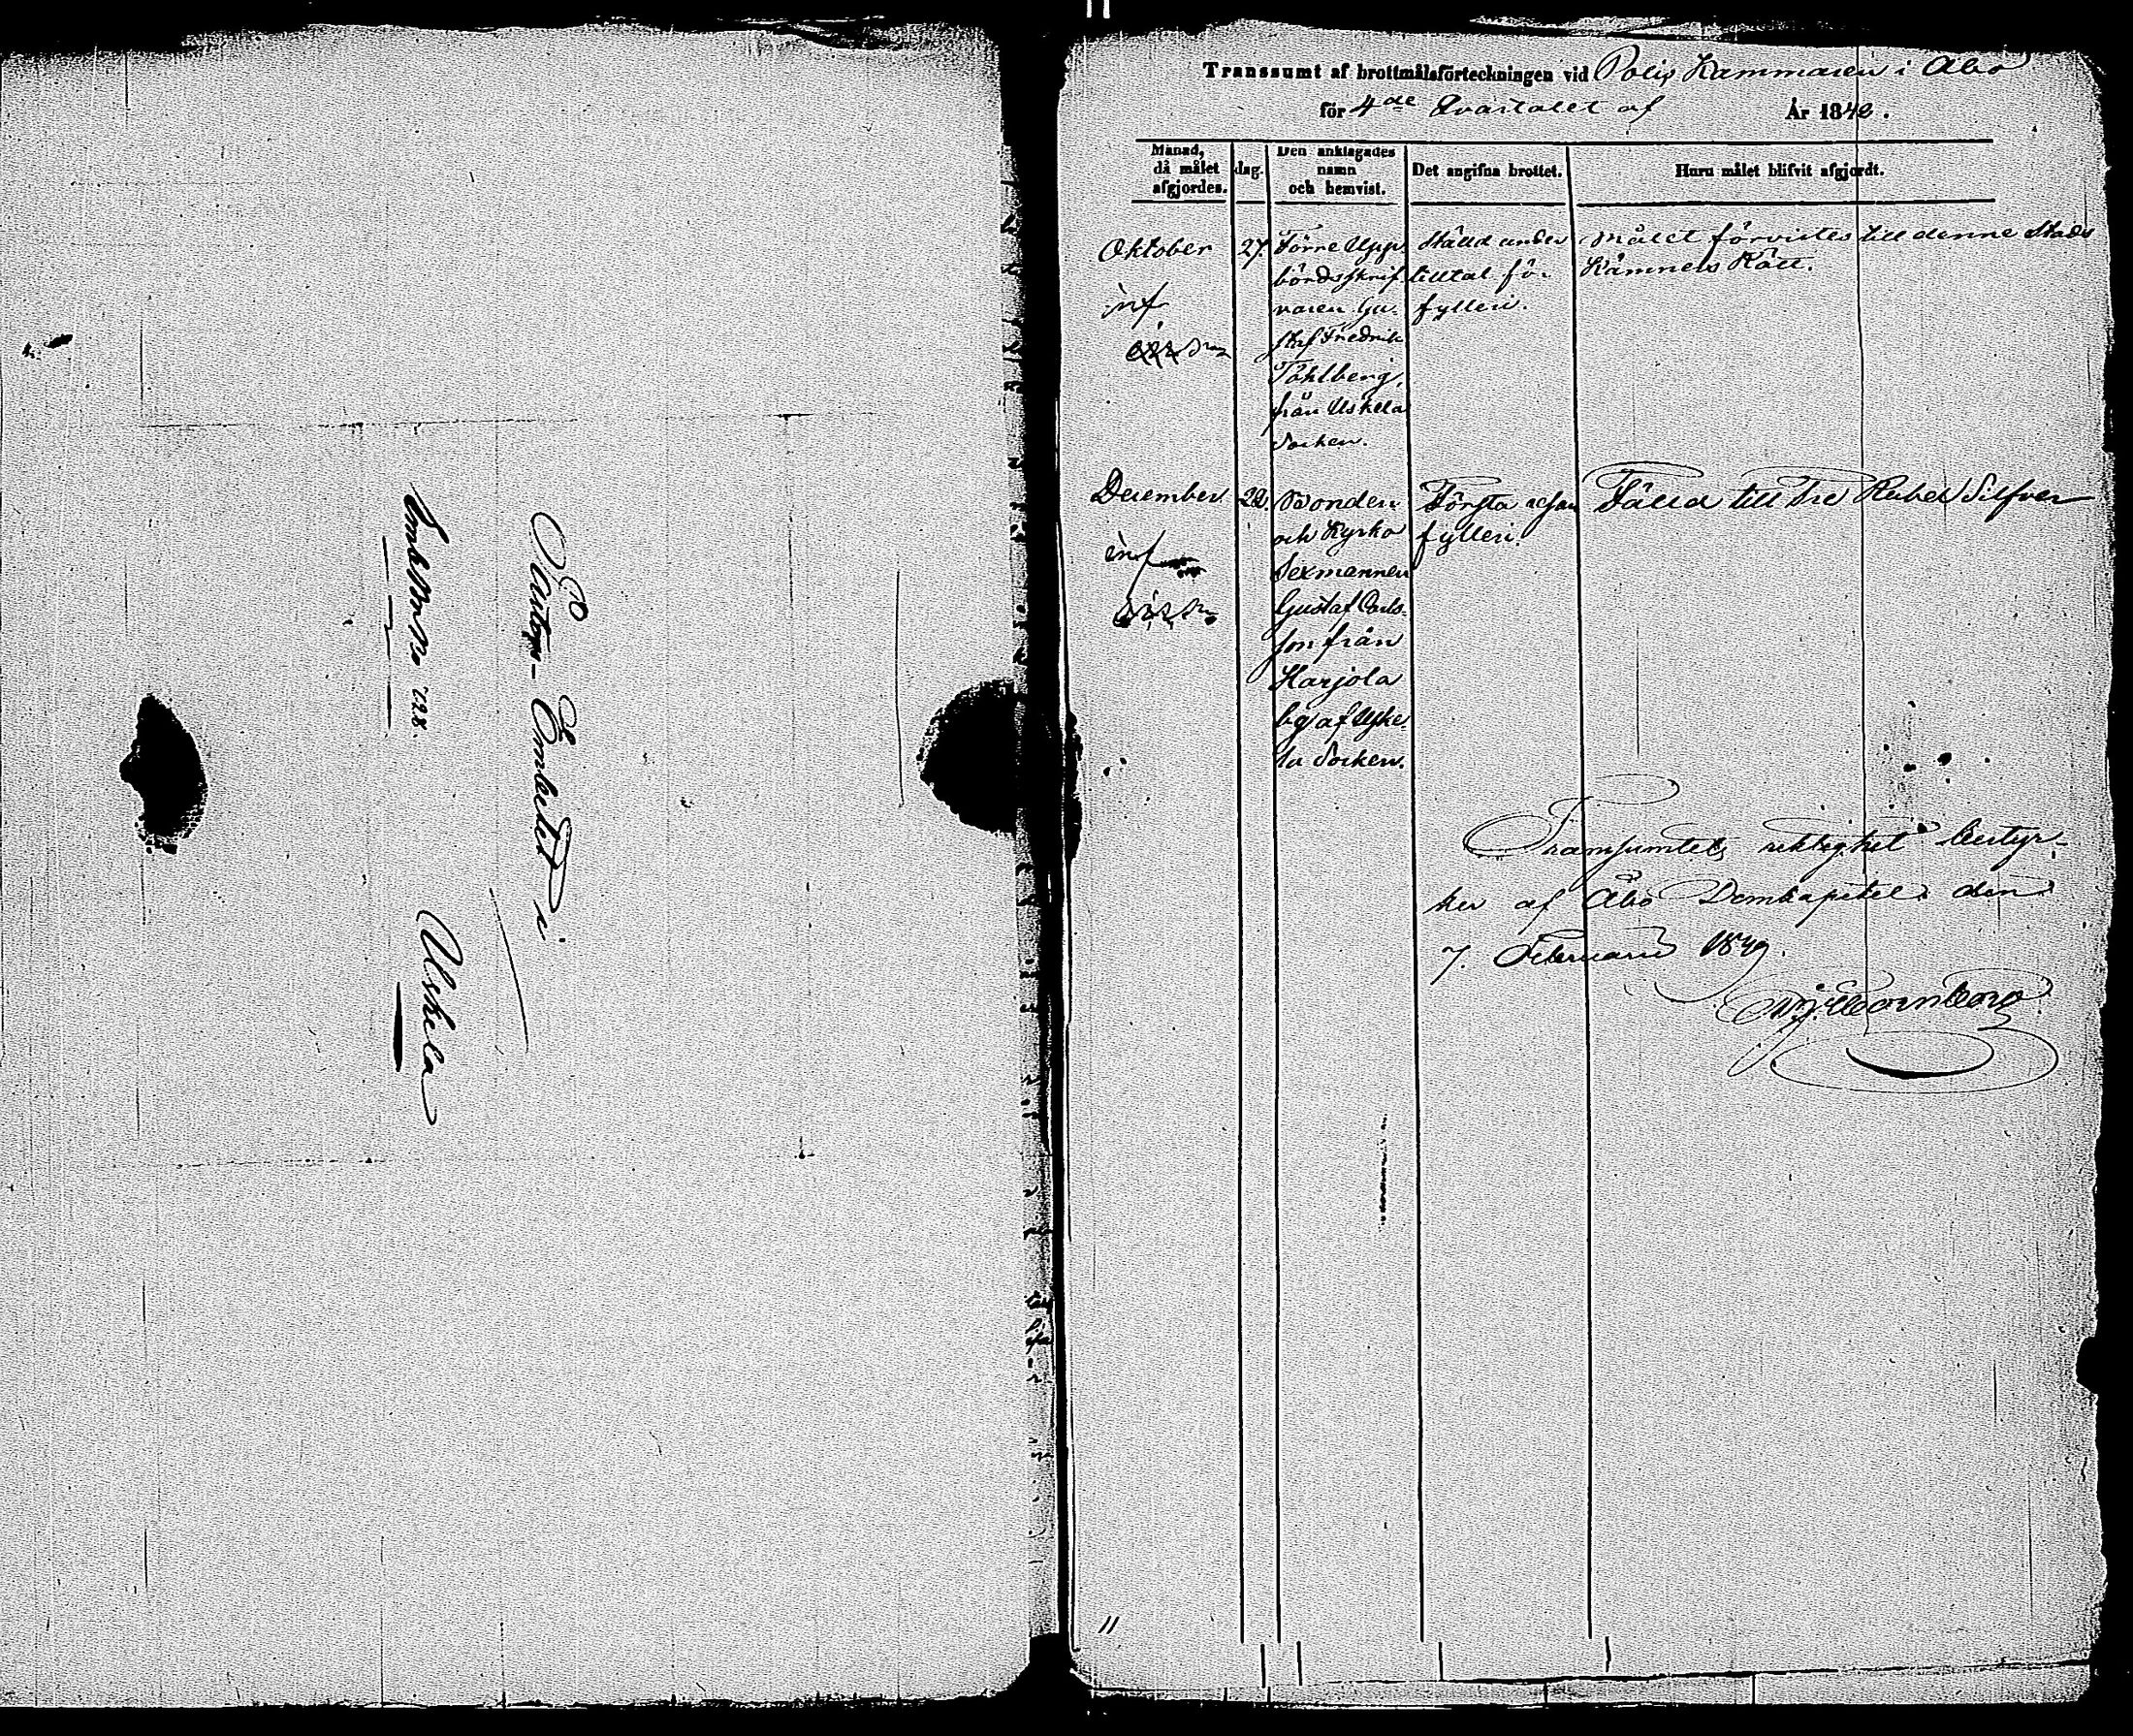 Pastors-Embetet i
Uskela
EmbBr No 728.
Transsumt af brottmålsförteckningen vid Polis Kammaren i Åbo
för 4de Qvartalet af År 1848.
Månad, då målet afgjordes.
dag.
Den anklagades namn och hemvist.
Det angifna brottet.
Huru målet blifvit afgjordt.
Oktober
inf
27.
Förre Upp-
bördsskrif-
varen Gu-
staf Fredrik
Tåhlberg,
från Uskela
Socken.
Ställd under
tilltal för
fylleri.
Målet förvistes till denne Stads
Kämners Rätt.
December
inf
22.
Bonden
och Kyrko
Sexmannen
Gustaf Carls-
son från
Harjola
by af Uske-
la Socken.
Första resan
fylleri.
Fälld till Tre Rubel Silfver
Transsumtets riktighet bestyr-
ker af Åbo Domkapitel den
7. Februarii 1849.
11